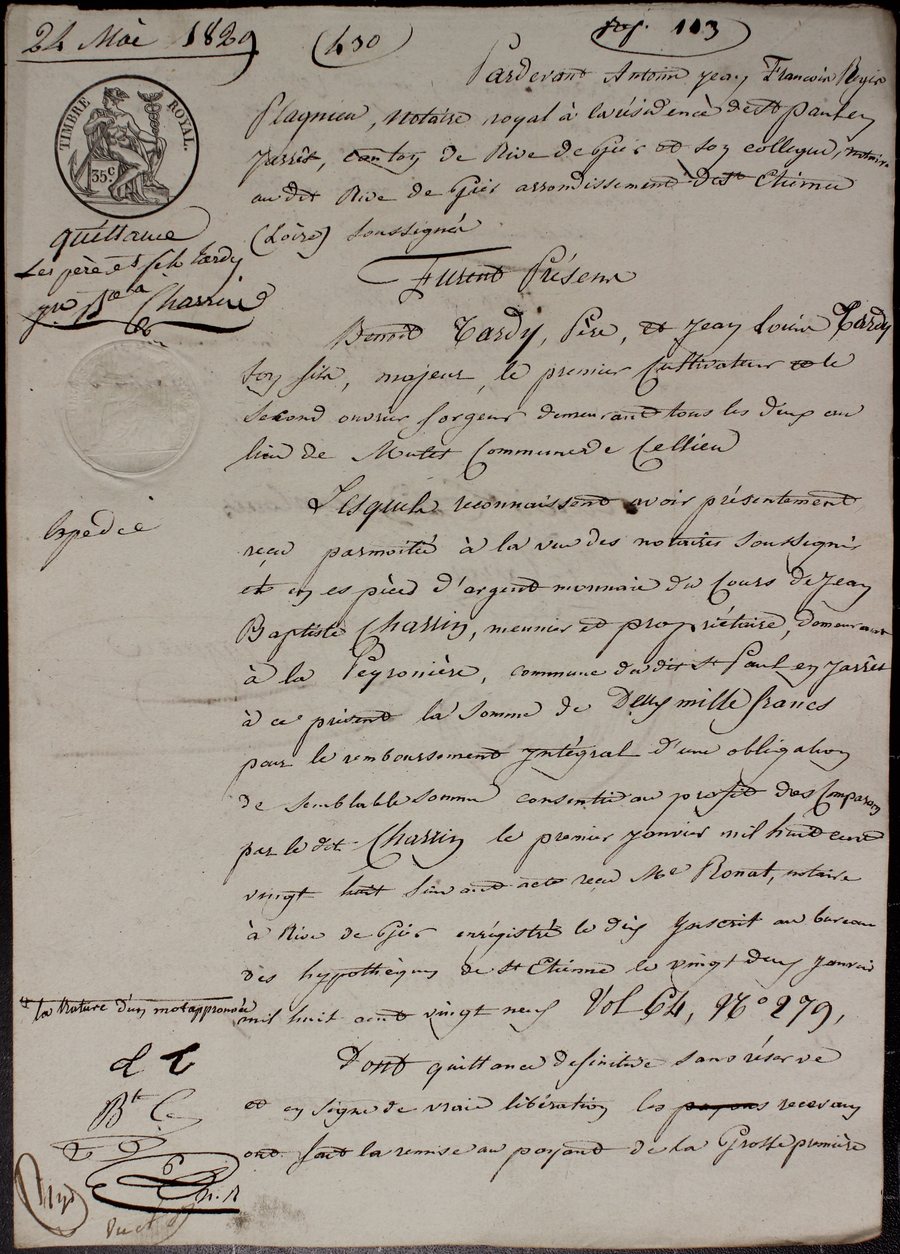 24 Mai 1829
(430)
rep. 113
TIMBRE ROYAL.
35 c
quittance
Les père et fils tardy
Charrin
Expédié
Pardevant Antoine Jean François Régis
Plagnieu, notaire royal à la résidence de St paul en
Jarrêt, canton de Rive de Gier et son collegue, notaire
au dit Rive de Gier arrondissement de St Etienne
(Loire) soussignés
Furent Présens
Benoit Tardy, Père, et Jean Louis Tardy
son fils, majeur, le premier Cultivateur et le
second ouvrier forgeur demeurant tous les deux au
lieu de Mulet Commune de Cellieu
Lesquels reconnaissent avoir présentement
reçu par moitié à la vue des notaires soussignés
et en espèces d'argent monnaie du Cours de Jean
Baptiste Charrin, meunier et propriétaire, demeurant
à la Peyronière, commune du dit St Paul en Jarrêt
à ce présent la somme de Deux mille francs
pour le remboursement intégral d'une obligation
de semblable somme consentie au profit des Comparans
par le dit Charrin le premier janvier mil huit cent
vingt huit suivant acte reçu Me Ronat, notaire
à Rive de Gier enregistré le dix Inscrit au bureau
des hypothèques de St Etienne le vingt deux janvier
mil huit cent vingt neuf Vol 64, No 279,
Dont quittance definitive sans réserve
et en signe de vraie libération les payans recevans
ont fait la remise au payant de la Grosse première
la Rature d'un mot approuvée
Bt C